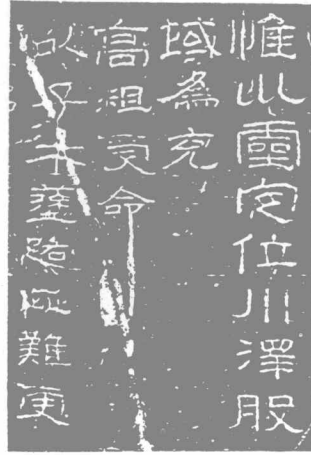 惟巛靈定位川澤股
域為充
高祖受命
以子午塗路歰難更